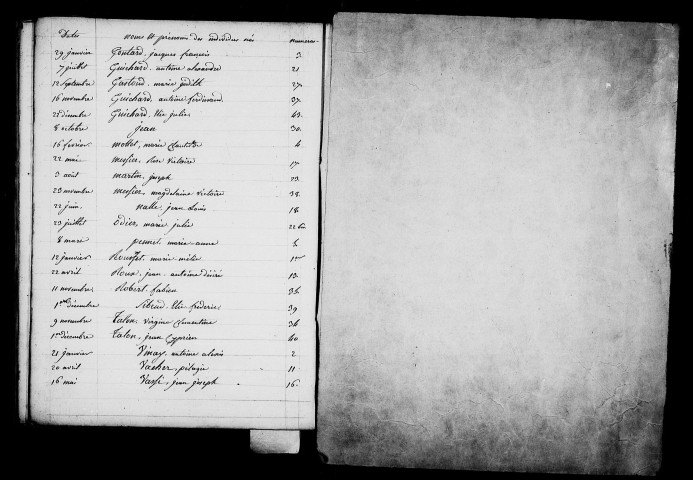 Dates noms et prénoms des individus nés numéros
29 janvier Goulard, jacques françois 3
7 juillet Guichard, antoine alexandre 21
12 septembre Gastoud, marie judith 27
16 novembre Guichard, antoine ferdinand 37
25 décembre Guichard, julie 43
8 octobre jean 30
16 février mottet, marie 4
22 mai messier, Rose victoire 17
3 août martin, joseph 23
23 novembre messier, magdelaine victoire 38
22 juin jean Louis 18
23 juillet Edier, marie julie 22 bis
8 mars pennet, marie anne 5
12 janvier marie 1er
22 avril Roux, jean antoine désiré 13
11 novembre Robert, fabien 35
1er décembre fréderic 39
9 novembre Talon, virginie clémentine 34
1er décembre Talon, jean Cyprien 40
21 janvier Vinay, antoine alexis 2
20 avril Vacher, pélagie 11
16 mai jean joseph 16